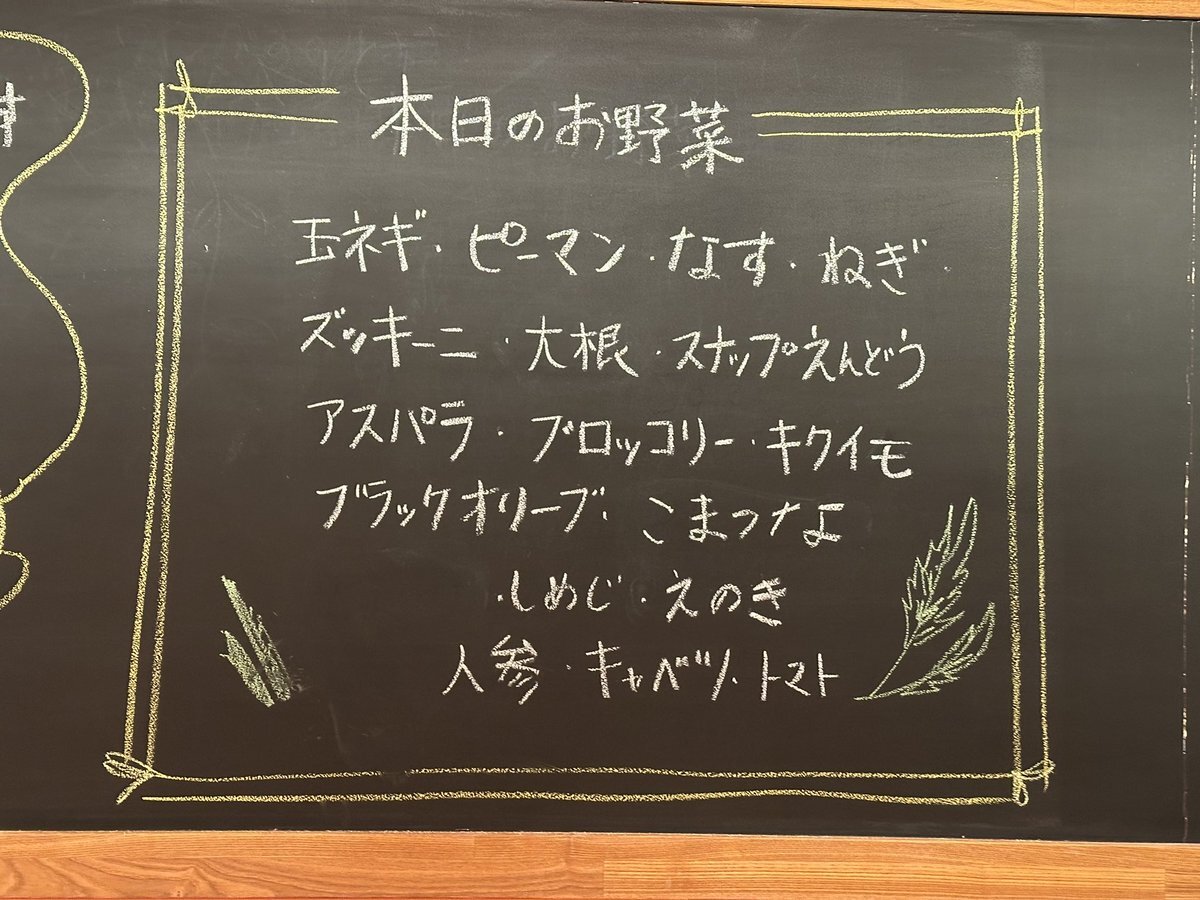 本日のお野菜
玉ネギ・ピーマン・なす・ねぎ
ズッキーニ・大根・スナップえんどう
アスパラ・ブロッコリー・キクイモ
ブラックオリーブ・こまつな
・しめじ・えのき
人参・キャベツ・トマト